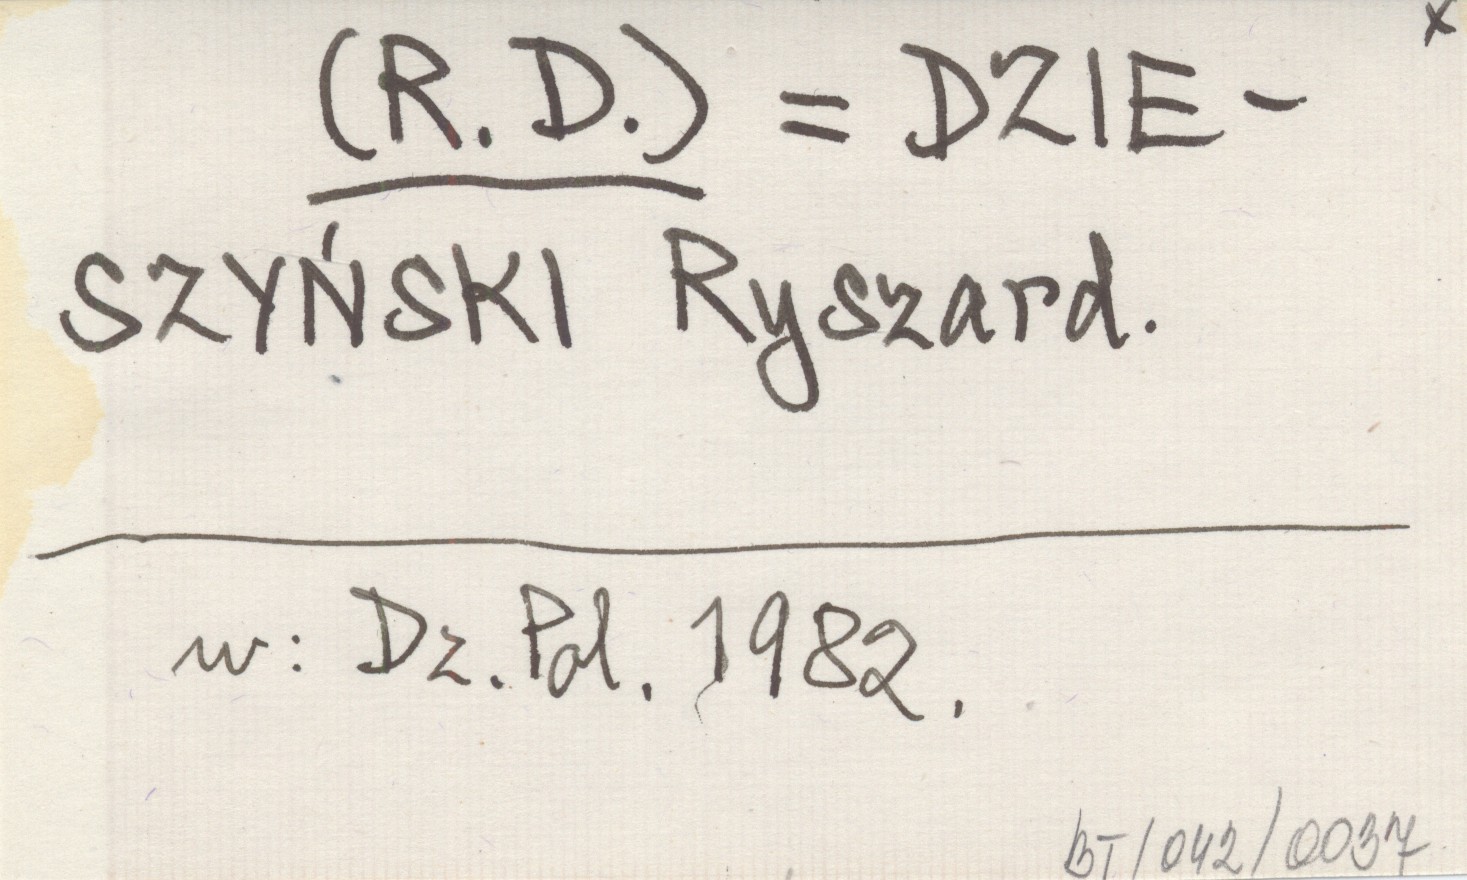 x
(R.D.) = DZIE-
SZYŃSKI Ryszard.
w: Dz. Pol. 1982.
BT/042/0037